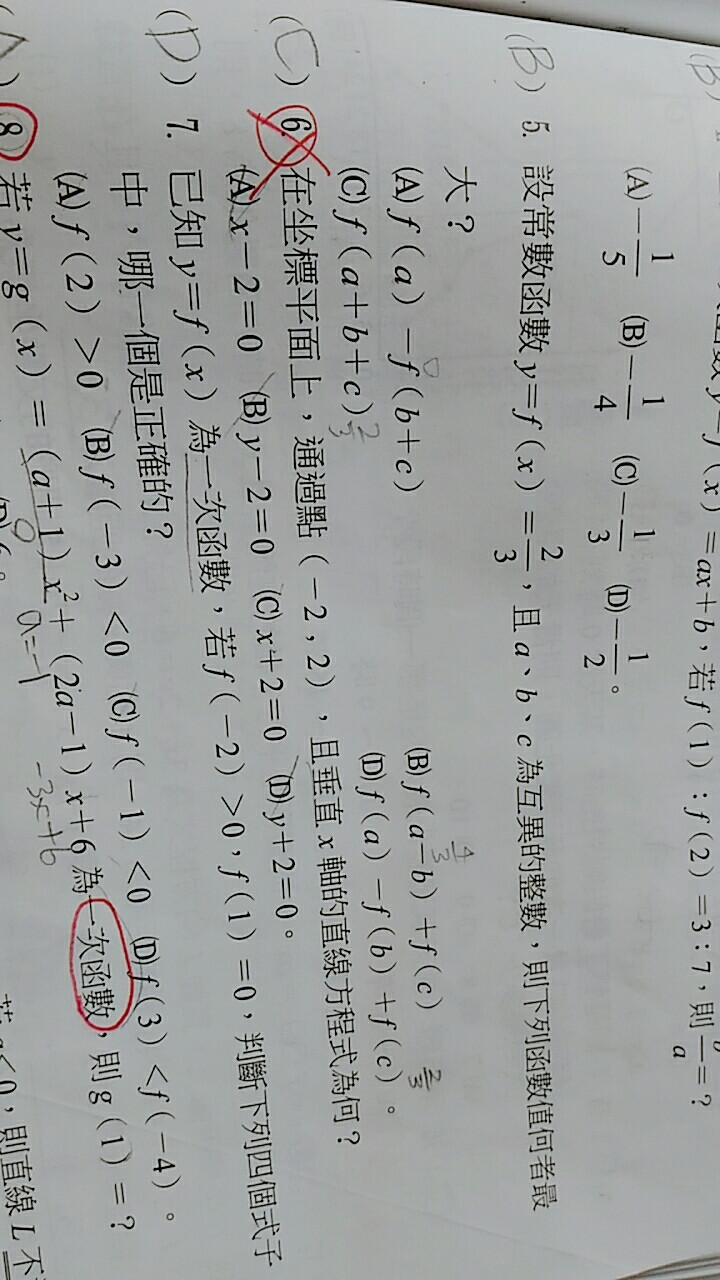 (x)=ax+b,若f(1):f(2)=3:7,則b/a=?
(B)
(A)−1/5 (B)−1/4 (C)−1/3 (D)−1/2。
(B) 5. 設常數函數y=f(x)=2/3,且a、b、c為互異的整數,則下列函數值何者最
大?
(A)f(a)−f(b+c) 0 (B)f(a−b)+f(c) 4/3
(C)f(a+b+c) 2/3 (D)f(a)−f(b)+f(c)。 2/3
(C) 6. 在坐標平面上,通過點(−2,2),且垂直x軸的直線方程式為何?
(A)x−2=0 (B)y−2=0 (C)x+2=0 (D)y+2=0。
(D) 7. 已知y=f(x)為一次函數,若f(−2)>0,f(1)=0,判斷下列四個式子
中,哪一個是正確的?
(A)f(2)>0 (B)f(−3)<0 (C)f(−1)<0 (D)f(3)<f(−4)。
(A) 8. 若y=g(x)=(a+1)x²+(2a−1)x+6為一次函數,則g(1)=?
0 a=−1 −3x+6
<0,則直線L不